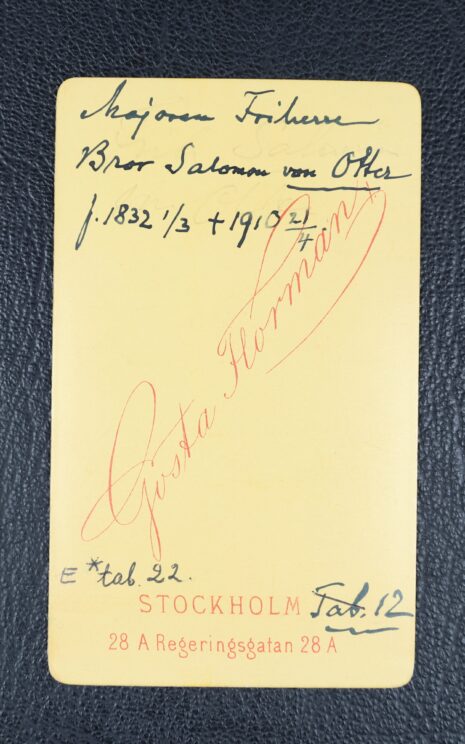 Majoren Friherre
Bror Salomon von Otter
f. 1832 1/3 + 1910 21/4.
Gösta Florman
E *tab. 22.
STOCKHOLM Tab. 12
28 A Regeringsgatan 28 A